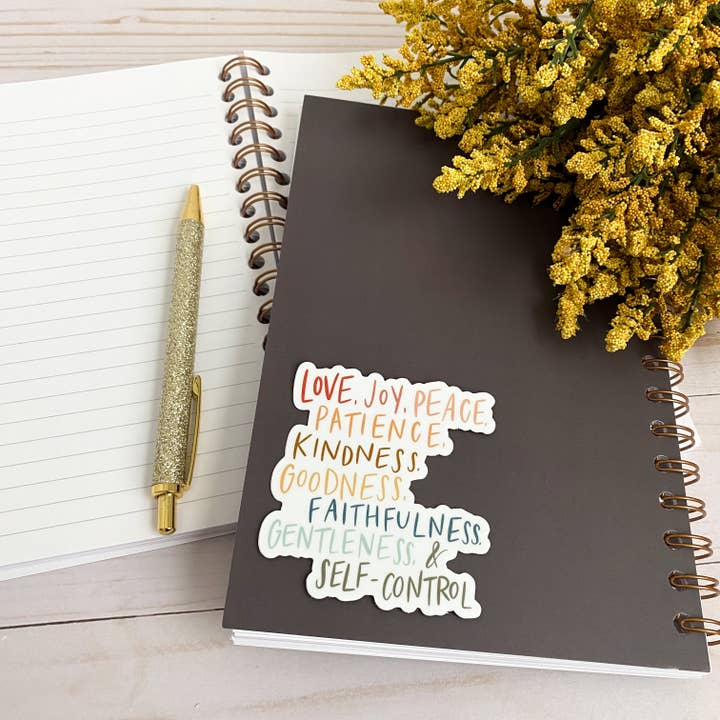 LOVE, JOY, PEACE,
PATIENCE,
KINDNESS,
GOODNESS,
FAITHFULNESS,
GENTLENESS, &
SELF-CONTROL